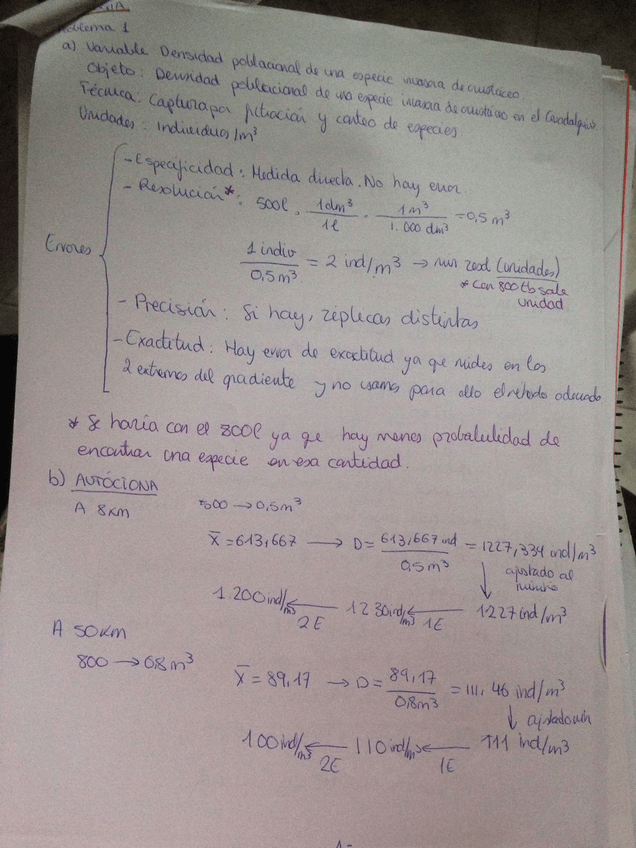 oblema 1
a) Variable Densidad poblacional de una especie invasora de crustáceo
Objeto: Densidad poblacional de una especie invasora de crustáceo en el Guadalquivir
Técnica: Captura por filtración y conteo de especies
Unidades: Individuos/m³
Errores
- Especificidad: Medida directa. No hay error.
- Resolución*: 500l · 1dm³/1l · 1m³/1.000 dm³ = 0,5 m³
1 indiv/0,5m³ = 2 ind/m³ → min resol (unidades)
* Con 800 tb sale unidad
- Precisión: Si hay, réplicas distintas
- Exactitud: Hay error de exactitud ya que mides en los
2 extremos del gradiente y no usamos para ello el método adecuado
* Se haría con el 800l ya que hay menos probabilidad de
encontrar una especie en esa cantidad.
b) AUTÓCTONA
A 8km
500 → 0,5m³
X̄ = 613,667 → D = 613,667 ind/0,5m³ = 1227,334 ind/m³
↓ ajustado al mínimo
1.200 ind/m³ ← 2E 1230 ind/m³ ← 1E 1227 ind/m³
A 50km
800 → 0,8m³
X̄ = 89,17 → D = 89,17/0,8m³ = 111,46 ind/m³
↓ ajustado min
100 ind/m³ ← 2E 110 ind/m³ ← 1E 111 ind/m³